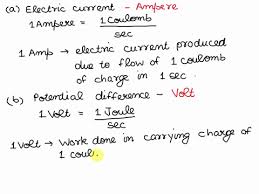 (a) Electric current - Ampere
1 Ampere = 1 Coulomb
sec
1 Amp → electric current produced
due to flow of 1 coulomb
of charge in 1 sec.
(b) Potential difference - Volt
1 Volt = 1 Joule
sec
1 Volt → Work done in carrying charge of
1 coul.